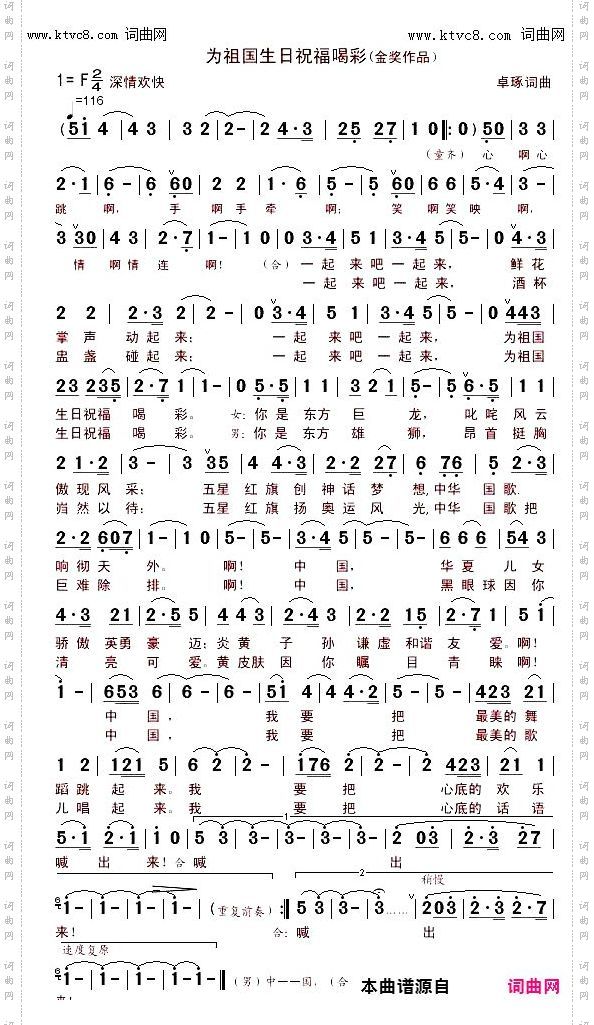 www.ktvc8.com 词曲网
www.ktvc8.com 词曲网
为祖国生日祝福喝彩(金奖作品)
1=F 2/4 深情欢快
卓琢词曲
=116
(童齐) 心 啊心
跳 啊, 手 啊手 牵 啊; 笑 啊笑 映 啊,
情 啊情 连 啊! (合) 一起 来吧 一起 来, 鲜花
一起 来吧 一起 来, 酒杯
掌 声 动起 来; 一起 来吧 一起 来, 为祖国
盅 盏 碰起 来; 一起 来吧 一起 来, 为祖国
生日祝福 喝 彩。 女:你是 东方 巨 龙, 叱咤 风云
生日祝福 喝 彩。 男:你是 东方 雄 狮, 昂首 挺胸
傲现 风 采; 五星 红旗 创 神话 梦 想,中华 国歌.
岿然 以 待; 五星 红旗 扬 奥运 风 光,中华 国歌把
响彻 天 外。 啊! 中 国, 华夏 儿女
巨难 除 排。 啊! 中 国, 黑眼 球因你
骄傲 英勇 豪 迈;炎黄 子 孙 谦虚 和谐 友 爱。啊!
清 亮 可 爱。黄皮肤 因 你 瞩 目 青 睐。啊!
中 国, 我 要 把 最美的 舞
中 国, 我 要 把 最美的 歌
蹈跳 起 来。我 要 把 心底的 欢乐
儿唱 起 来。我 要 把 心底的 话语
喊 出 来!合:喊 出
稍慢
(重复前奏)
来! 合:喊 出
速度复原
(男)中——国, (合
本曲谱源自 词曲网